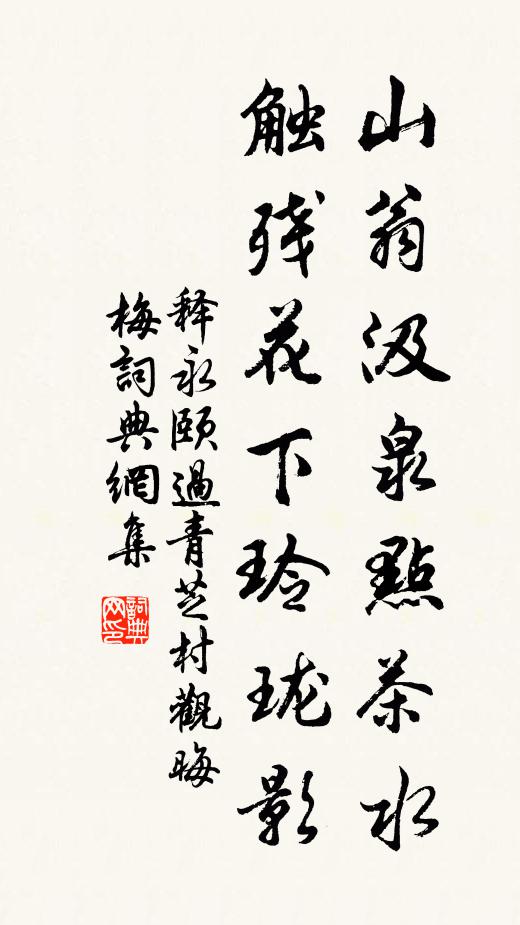 山翁汲泉點茶水
触残花下玲珑影
释永颐過青芝村觀晦
梅詞典網集
詞典网印